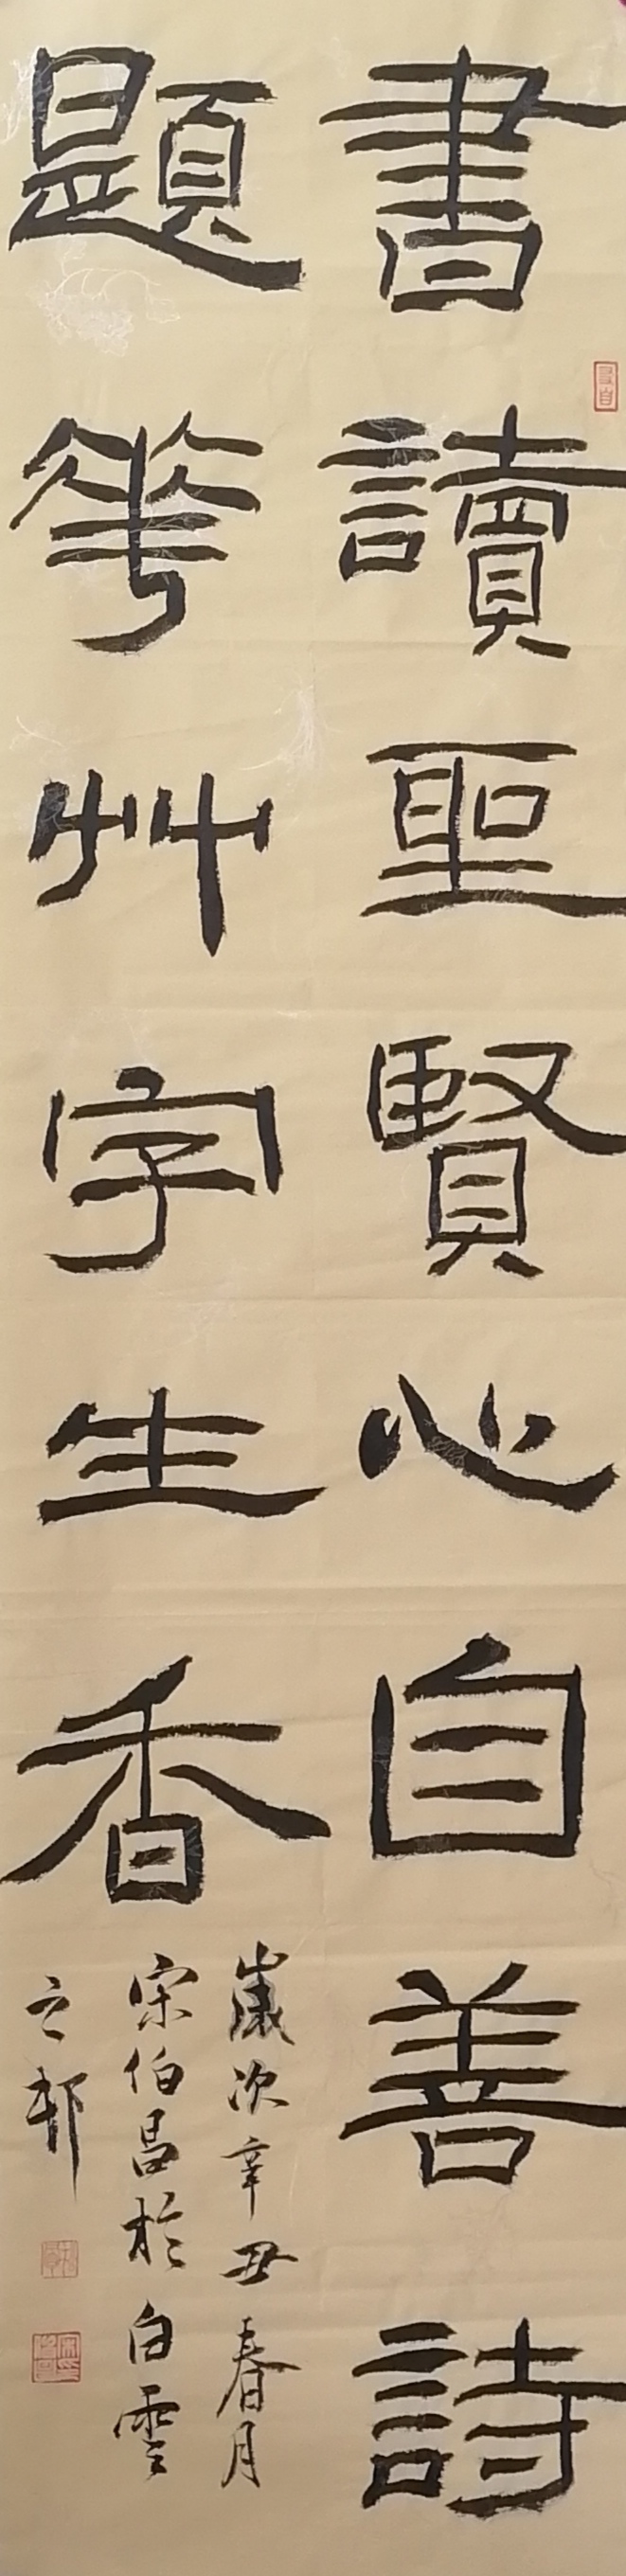 書讀聖賢心自善詩
題花艸字生香
歲次辛丑春月
宋伯昌於白雲
之邨